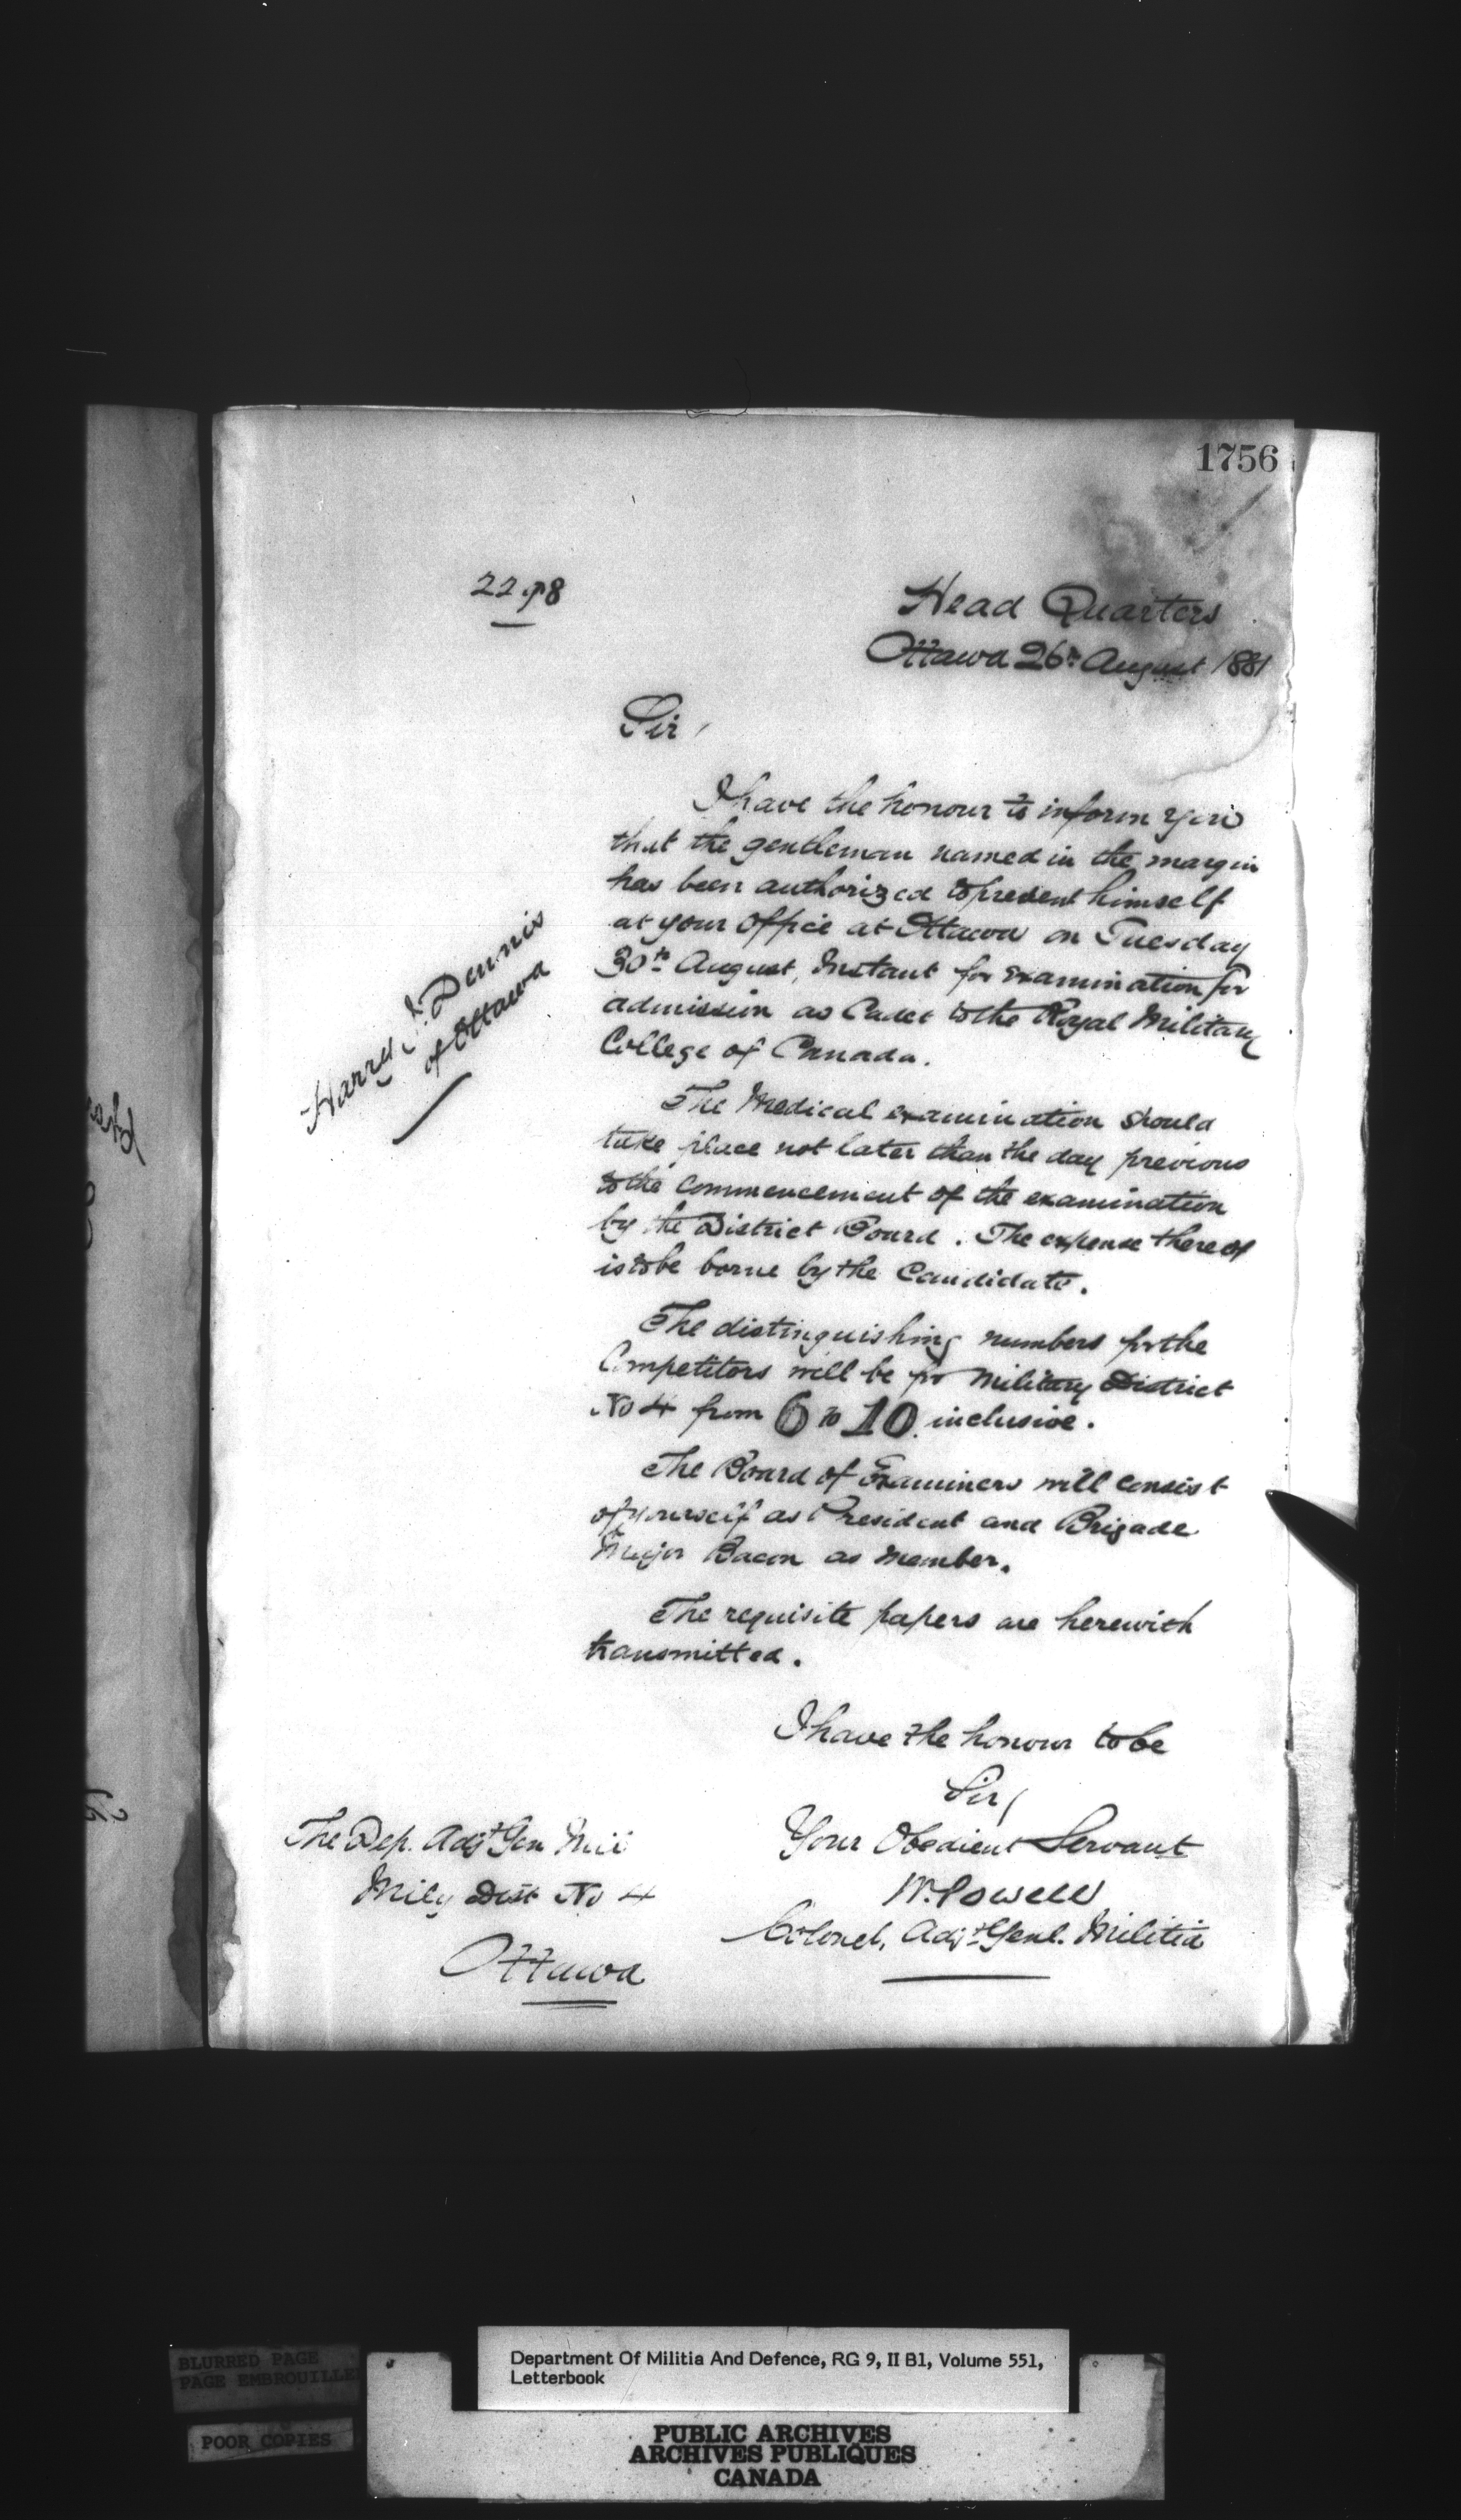 1756
Head Quarters
Ottawa 26th August 1881
Sir,
I have the honour to inform you
that the gentleman named in the margin
has been authorized to present himself
at your Office at Ottawa on Tuesday
30th August, Instant for examination for
admission as Cadet to the Royal Military
College of Canada.
Harry Dennis
of Ottawa
The Medical examination should
take place not later than the day previous
to the Commencement of the examination
by the District Board. The expense thereof
is to be borne by the Candidate.
The distinguishing numbers for the
Competitors will be for Military District
No 4 from 6 to 10 inclusive.
The Board of Examiners will consist
of yourself as President and Brigade
Major Bacon as member.
The requisite papers are herewith
transmitted.
I have the honour to be
Sir,
Your Obedient Servant
W. Powell
Colonel, Adjt Genl. Militia
The Dep. Adjt Gen Mil
Mily Dist No 4
Ottawa
BLURRED PAGE
PAGE EMBROUILLE
POOR COPIES
Department Of Militia And Defence, RG 9, II B1, Volume 551,
Letterbook
PUBLIC ARCHIVES
ARCHIVES PUBLIQUES
CANADA